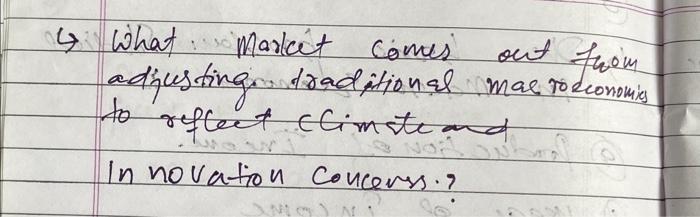 ↳ What Market comes out from
adjusting traditional macroeconomics
to reflect climate and
Innovation concerns.?